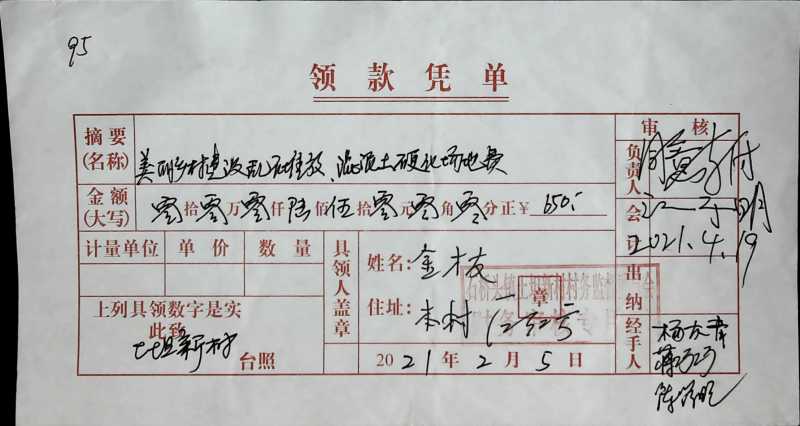 95
领款凭单
摘要(名称) 美丽乡村建设乱石堆放、混泥土硬化场地费
金额(大写) 零拾零万零仟陆佰伍拾零元零角零分正￥650.-
计量单位 单价 数量
上列具领数字是实
此致
土坦新村
台照
具领人盖章
姓名: 金枝
住址: 本村
2021年2月5日
审核
负责人 同意支付
会计
2021.4.19
出纳
经手人